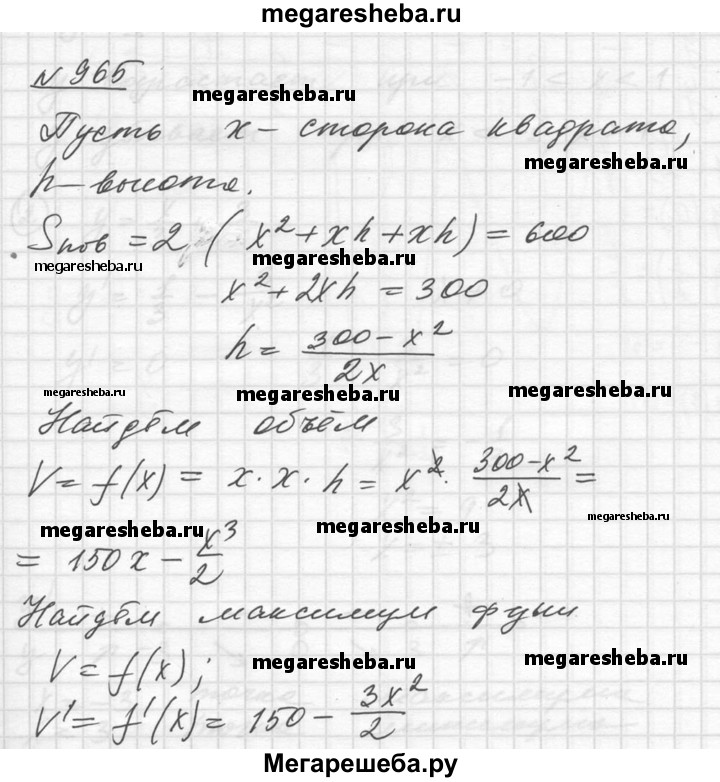 megaresheba.ru
№965
megaresheba.ru
Пусть x – сторона квадрата,
megaresheba.ru
h – высота.
Sпов = 2 (x² + xh + xh) = 600
megaresheba.ru
megaresheba.ru
x² + 2xh = 300
h = (300 – x²)/(2x)
megaresheba.ru
megaresheba.ru
megaresheba.ru
Найдём объём
V = f(x) = x · x · h = x² · (300 – x²)/(2x) =
megaresheba.ru
megaresheba.ru
megaresheba.ru
= 150x – x³/2
Найдём максимум функ.
V = f(x);
megaresheba.ru
megaresheba.ru
V' = f'(x) = 150 – 3x²/2
megaresheba.ru
megaresheba.ru
Мегарешеба.ру